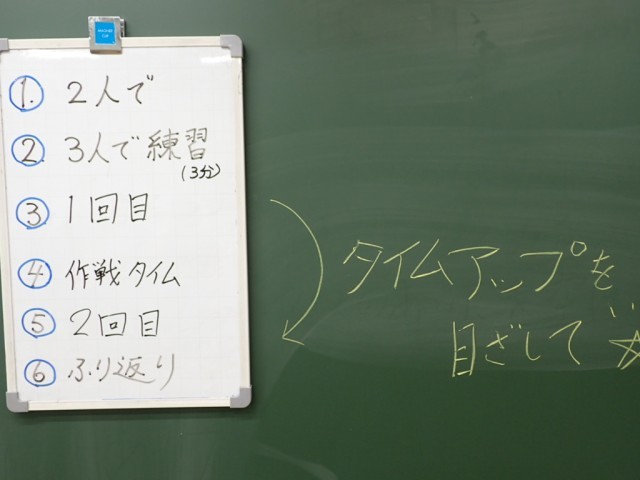 ① 2人で
② 3人で練習
(3分)
③ 1回目
④ 作戦タイム
⑤ 2回目
⑥ ふり返り
タイムアップを
目ざして ☆